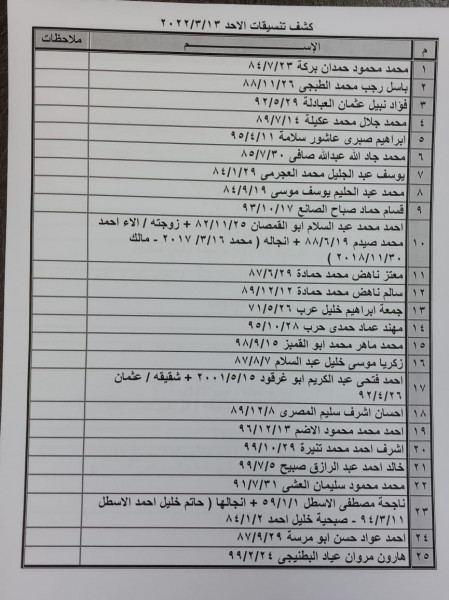 كشف تنسيقات الاحد ٢٠٢٢/٣/١٣
م الإســـــــم ملاحظات
١ محمد محمود حمدان بركة ٨٤/٧/٢٣
٢ باسل رجب محمد الطبجى ٨٨/١١/٢٦
٣ فؤاد نبيل عثمان العبادلة ٩٢/٥/٢٩
٤ محمد جلال محمد عكيلة ٨٩/٧/١٤
٥ ابراهيم صبرى عاشور سلامة ٩٥/٤/١١
٦ محمد جاد الله عبدالله صافى ٨٥/٧/٣٠
٧ يوسف عبد الجليل محمد العجرمى ٨٤/١/٢٩
٨ محمد عبد الحليم يوسف موسى ٨٤/٩/١٩
٩ قسام حماد صباح الصانع ٩٣/١٠/١٧
١٠ احمد محمد عبد السلام ابو القمصان ٨٢/١١/٢٥ + زوجته / الاء احمد
محمد صيدم ٨٨/٦/١٩ + انجاله ( محمد ٢٠١٧/٣/١٦ - مالك
٢٠١٨/١١/٣٠ )
١١ معتز ناهض محمد حمادة ٨٧/٦/٢٩
١٢ سالم ناهض محمد حمادة ٨٩/١٢/١٢
١٣ جمعة ابراهيم خليل عرب ٧١/٥/٢٦
١٤ مهند عماد حمدى حرب ٩٥/١٠/٢٨
١٥ محمد ماهر محمد ابو القمبز ٩٨/٩/١٥
١٦ زكريا موسى خليل عبد السلام ٨٧/٨/٧
١٧ احمد فتحى عبد الكريم ابو غرقود ٢٠٠١/٥/١٥ + شقيقه / عثمان
٩٢/٤/٢٦
١٨ احسان اشرف سليم المصرى ٨٩/١٢/٨
١٩ احمد محمد محمود الاضم ٩٦/١٢/١٣
٢٠ اشرف احمد محمد تنيرة ٩٩/١٠/٢٩
٢١ خالد احمد عبد الرازق صبيح ٩٩/٧/٥
٢٢ محمد محمود سليمان العشى ٩١/٧/٣١
٢٣ ناجحة مصطفى الاسطل ٥٩/١/١ + انجالها ( حاتم خليل احمد الاسطل
٩٤/٣/١١ - صبحية خليل احمد ٨٤/١/٢
٢٤ احمد عواد حسن ابو مرسة ٨٧/٩/٢٩
٢٥ هارون مروان عياد البطنيجى ٩٩/٢/٢٤